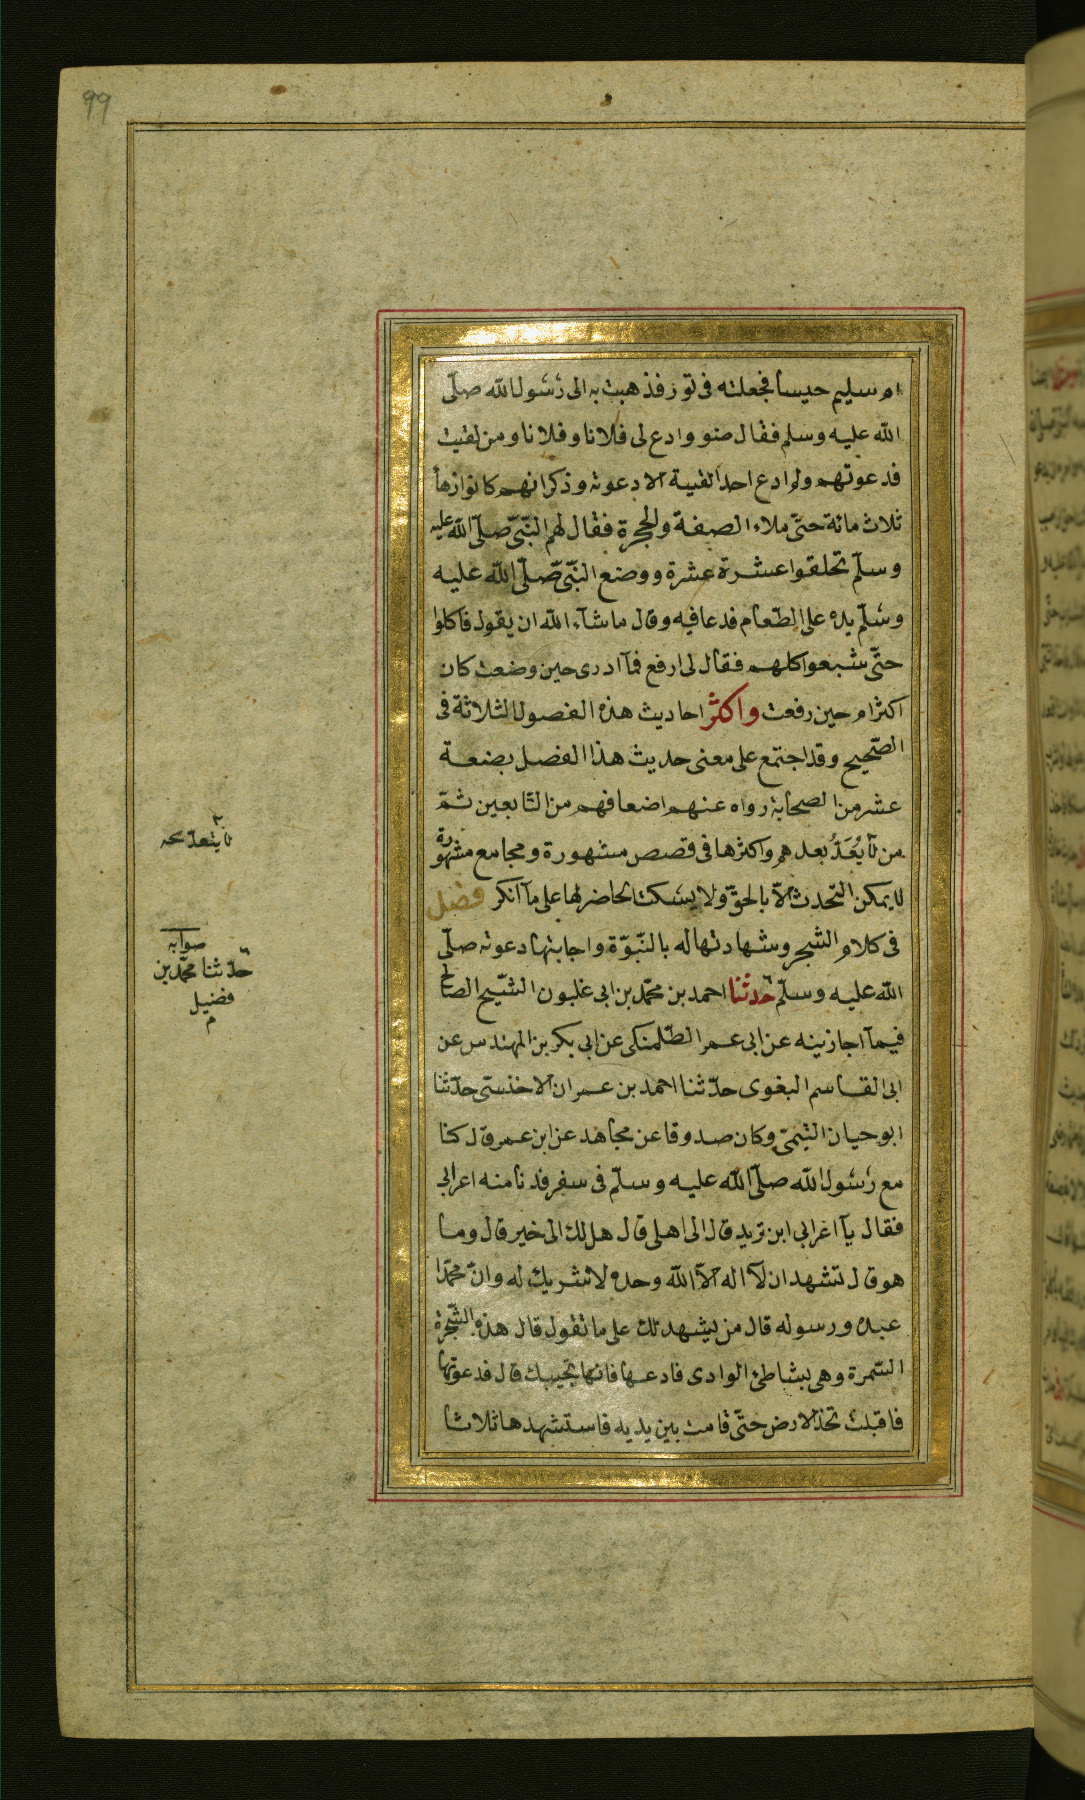 99
ام سليم حيسا فجعلته فى تور فذهبت به الى رَسُول الله صلّى
الله عليه وسلم فقال ضعه وادع لى فلانا وفلانا ومن لقيت
فدعوتهم ولم ادع احدا لقيته الا دعوته وذكر انهم كانوا زهآ
ثلاث مائة حتّى ملاء الصفة والحجرة فقال لهم النّبّى صلّى الله عليه
وسلّم تحلقوا عشرة عشرة ووضع النّبّى صّلّى الله عليه
وسّلّم يده على الطّعام فدعا فيه وقال ما شآء الله ان يقول فاكلوا
حتّى شبعوا كلهم فقال لى ارفع فمآ ادرى حين وضعت كان
اكثر ام حين رفعت واكثر احاديث هذه الفصول الثلاثة فى
الصّحيح وقد اجتمع على معنى حديث هذا الفصل بضعة
عشر من الصحابة رواه عنهم اضعافهم من التّابعين ثمّ
من لا يُعَدُّ بعدهم واكثرها فى قصص مشهورة ومجامع مشهورة
لا يمكن التّحدث الّا بالحقّ ولا يسكت الحاضر لها على مآ انكر فصل
فى كلام الشجر وشهادتها له بالنّبوّة واجابتها دعوته صلّى
الله عليه وسلّم حدثنا احمد بن محمّد بن ابى غلبون الشّيخ الصالح
فيمآ اجازنيه عن ابى عمر الطّلمنكى عن ابى بكر بن المهندس عن
ابى القاسم البغوى حدّثنا احمد بن عمران الاخنسّى حدّثنا
ابو حيان التيمىّ وكان صدوقا عن مجاهد عن ابن عمر قال كنا
مع رَسُول الله صلّى الله عليه وسلّم فى سفر فدنا منه اعرابى
فقال يآ اعرابى اين تريد قال الى اهلى قال هل لك الى خير قال وما
هو قال تشهد ان لآ اله الّا الله وحده لا شريك له وانّ محمّدا
عبده ورسوله قال من يشهد لك على ما تقول قال هذه الشّجرة
السّمرة وهى بشاطئ الوادى فادعها فانها تجيبك قال فدعوتها
فاقبلت تخذ الارض حتّى قامت بين يديه فاستشهدها ثلاثا
صوابه
حدّثنا محمّد بن
فضيل
م